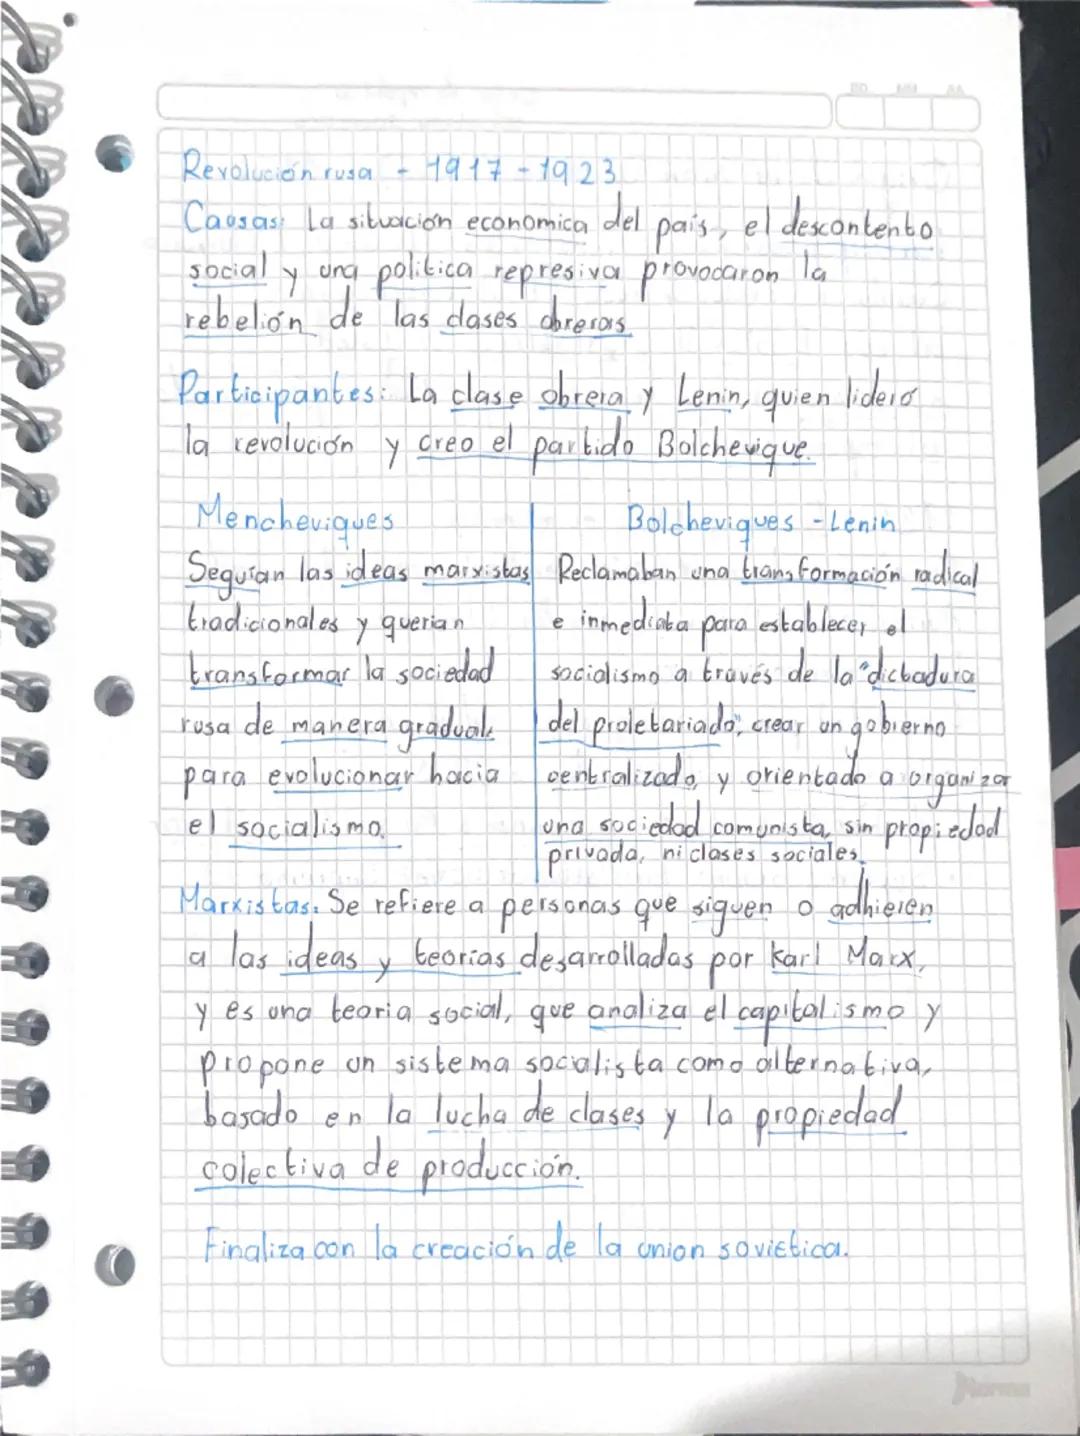 DD MM AA
Revolución rusa - 1917 - 1923
Causas: La situación economica del país, el descontento
social y una politica represiva provocaron la
rebelión de las clases obreras
Participantes: La clase obrera y Lenin, quien lideró
la revolución y creo el partido Bolchevique.
Mencheviques
Seguían las ideas marxistas
tradicionales y querian
transformar la sociedad
rusa de manera gradual
para evolucionar hacia
el socialismo.
Bolcheviques - Lenin
Reclamaban una transformación radical
e inmediata para establecer el
socialismo a través de la "dictadura
del proletariado", crear un gobierno
centralizado, y orientado a organizar
una sociedad comunista, sin propiedad
privada, ni clases sociales.
Marxistas: Se refiere a personas que siguen o adhieren
a las ideas y teorías desarrolladas por Karl Marx,
y es una teoria social, que analiza el capitalismo y
propone un sistema socialista como alternativa,
basado en la lucha de clases y la propiedad
colectiva de producción.
Finaliza con la creación de la union sovietica.
Norma